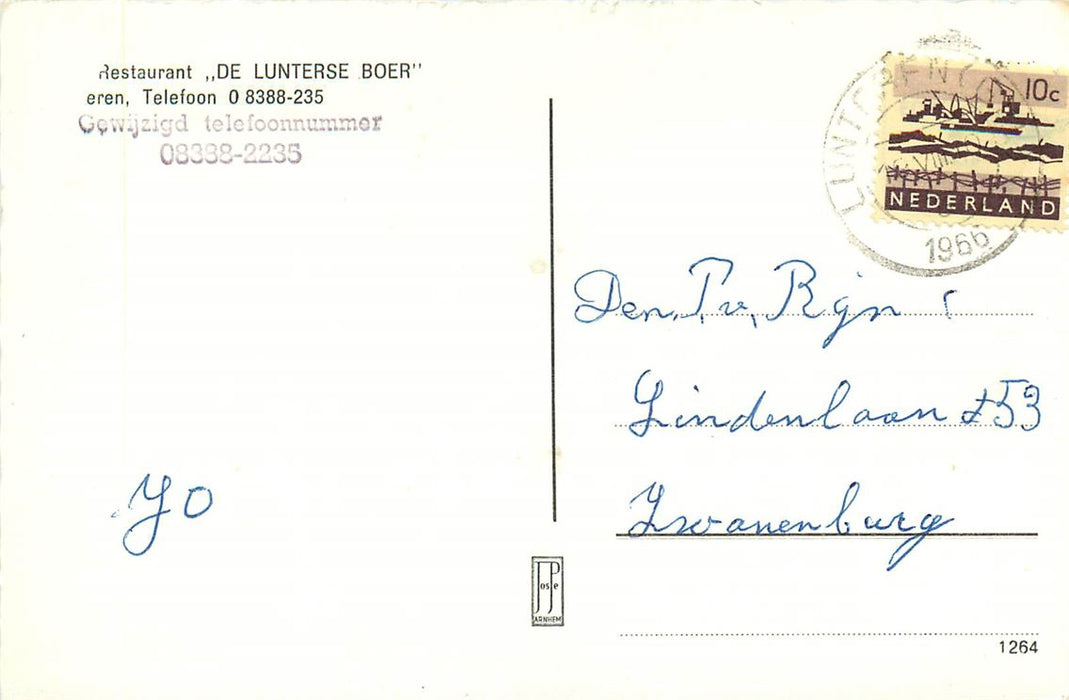 Restaurant „DE LUNTERSE BOER"
eren, Telefoon 0 8388-235
Gewijzigd telefoonnummer
08388-2235
10c
NEDERLAND
1966
Den. P. v. Rijn
Lindenlaan 253
Zwanenburg
Jo
ARNHEM
1264